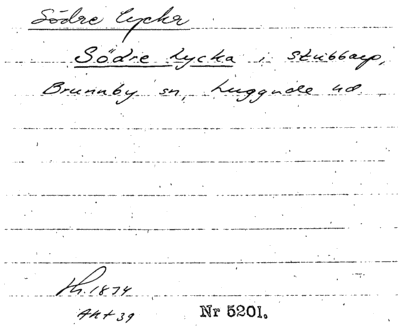 Södre lycka
Södre Lycka i Skubbarp,
Brunnby sn, Luggude hd.
Lh. 1874
Akt 39
Nr 5201.